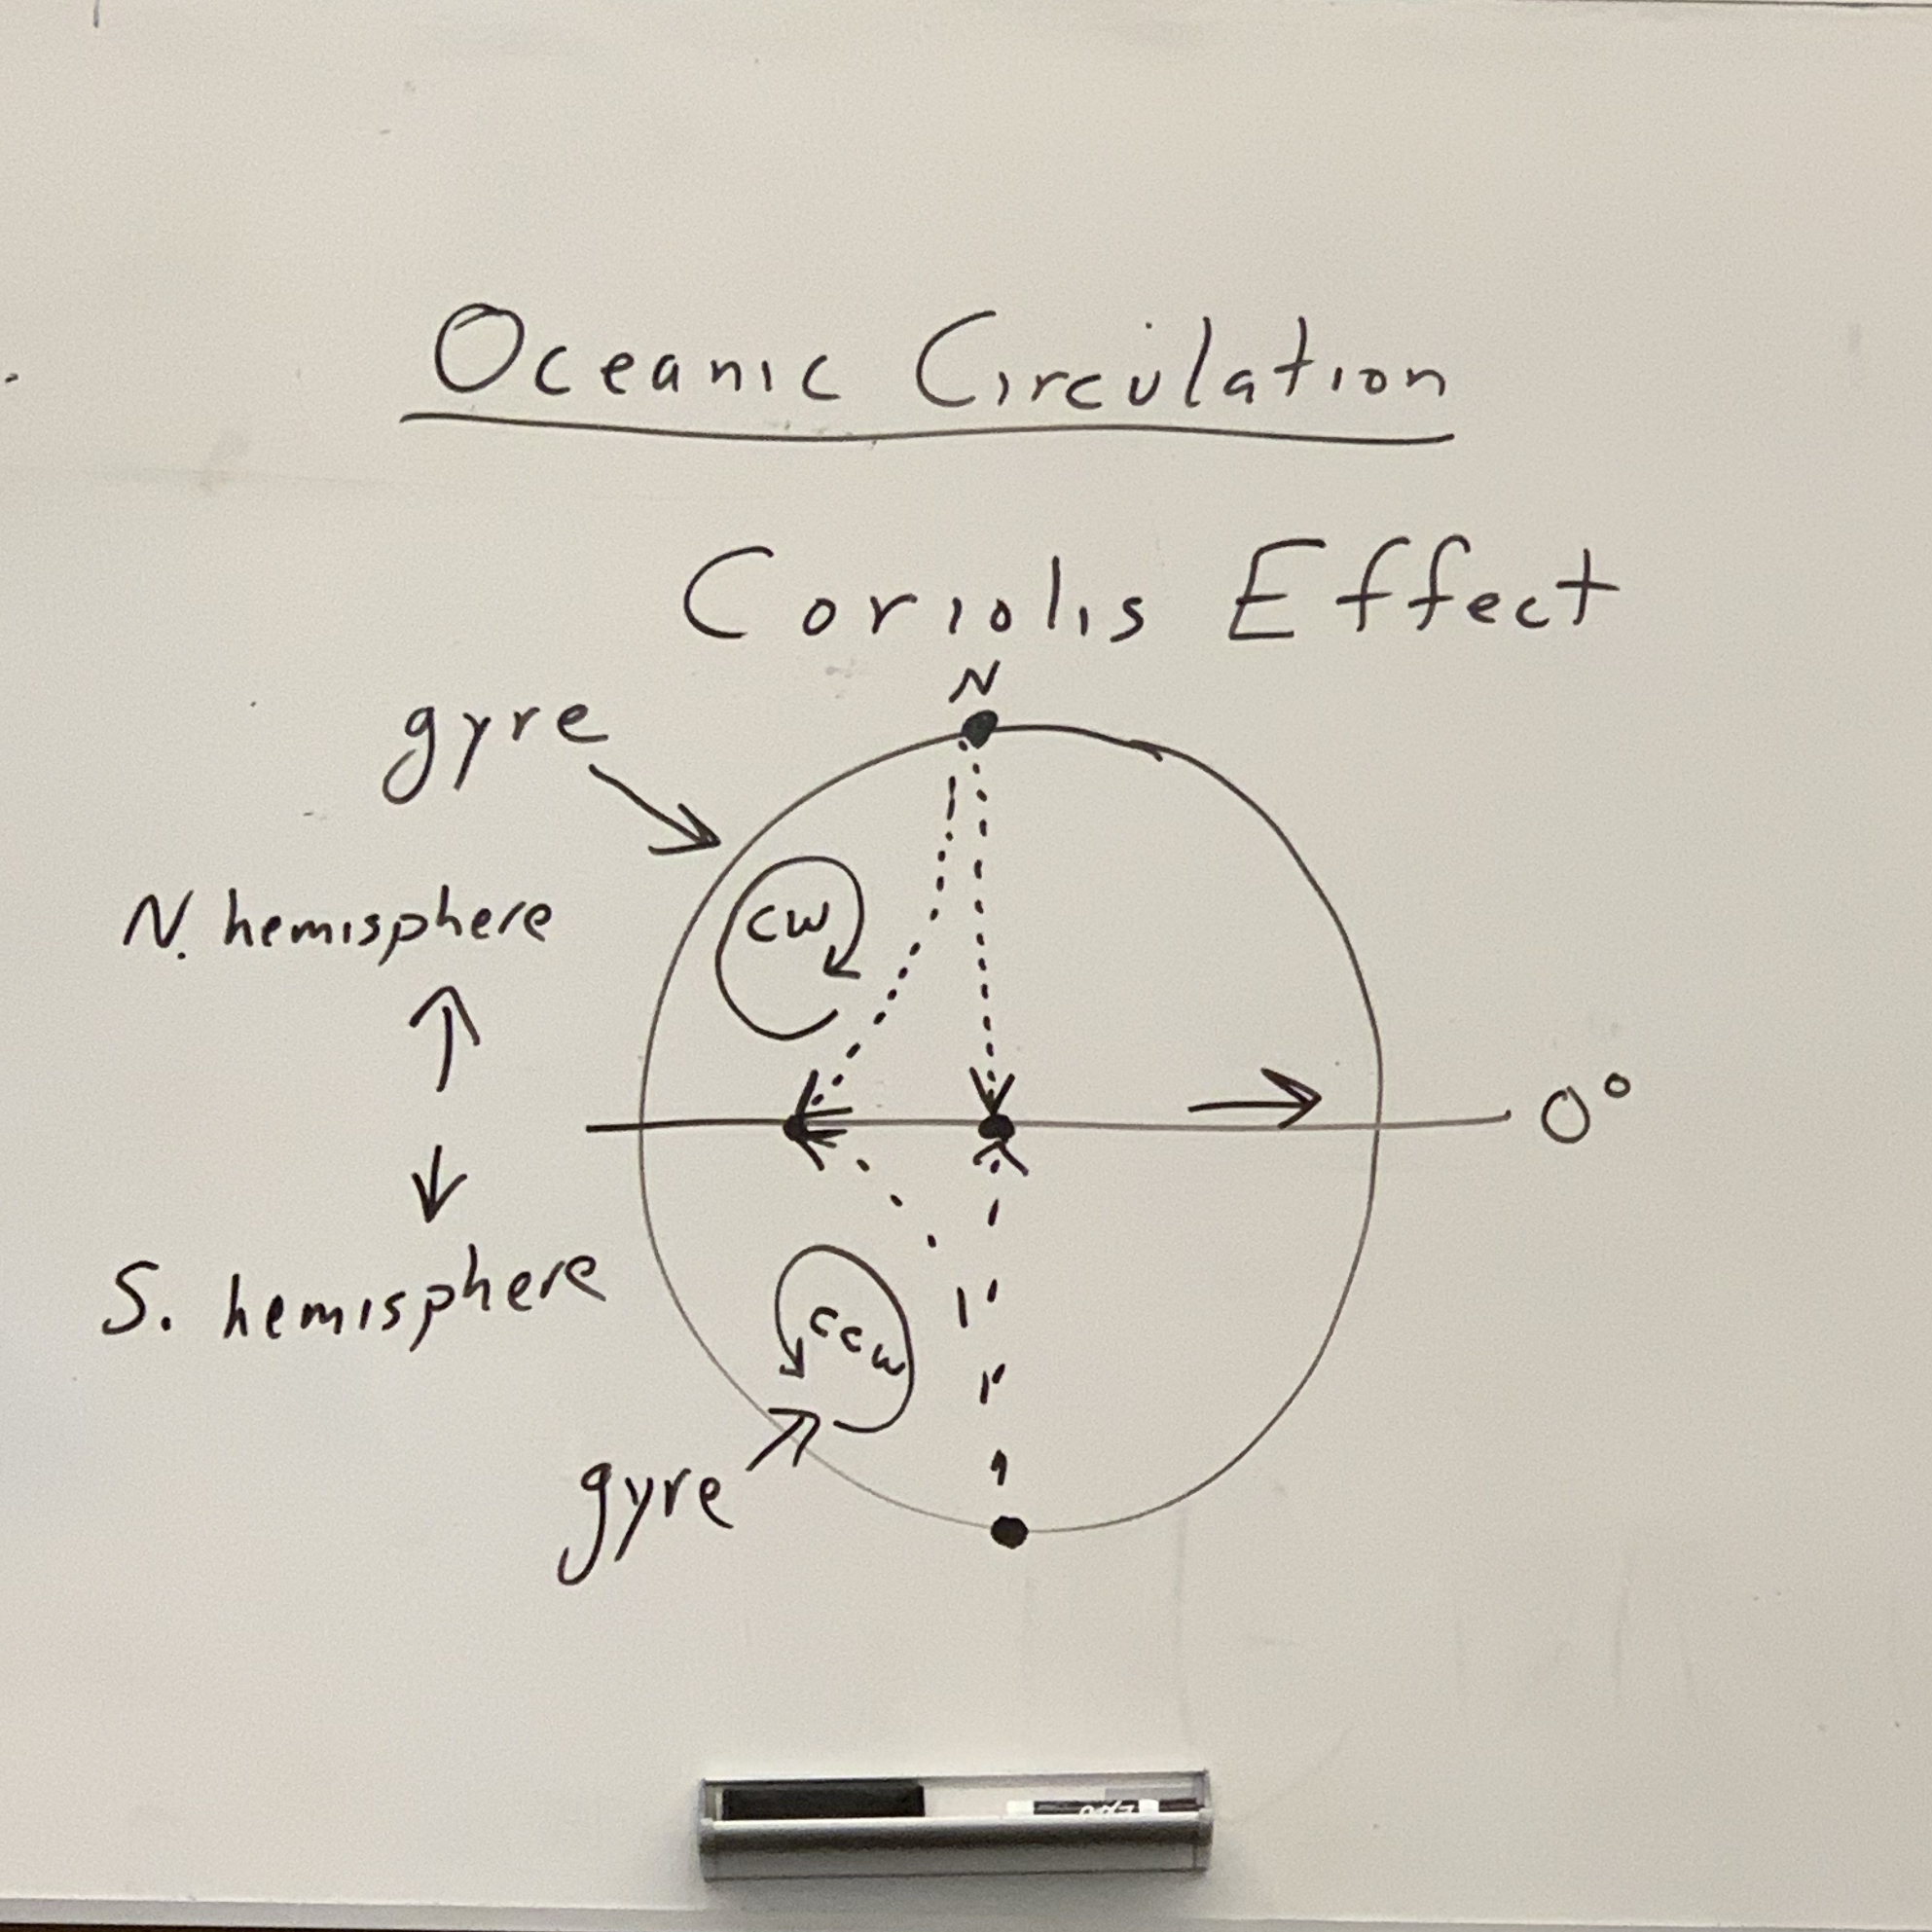 Oceanic Circulation
Coriolis Effect
N
gyre
cw
N. hemisphere
0°
S. hemisphere
ccw
gyre